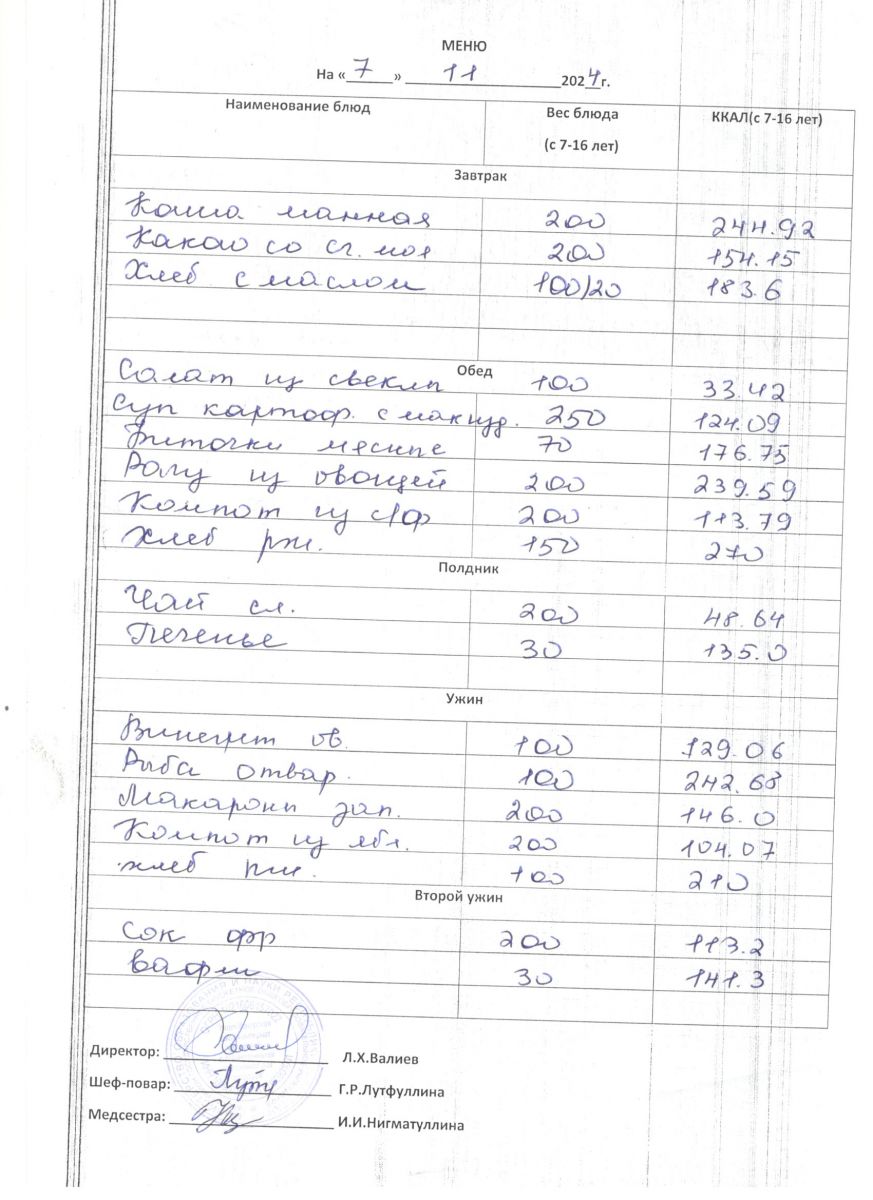 МЕНЮ
На «7» 11 2024г.
Наименование блюд Вес блюда (с 7-16 лет) ККАЛ(с 7-16 лет)
Завтрак
Каша манная 200 244.92
Какао со сг. мол 200 154.15
Хлеб с маслом 100/20 183.6
Обед
Салат из свеклы 100 33.42
Суп картоф. с мак изд. 250 124.09
Биточки мясные 70 176.75
Рагу из овощей 200 239.59
Компот из с/ф 200 113.79
Хлеб рж. 150 270
Полдник
Чай сл. 200 48.64
Печенье 30 135.0
Ужин
Винегрет ов. 100 129.06
Рыба отвар. 100 242.68
Макароны зап. 200 146.0
Компот из ябл. 200 104.07
хлеб рж. 100 210
Второй ужин
Сок фр 200 113.2
Вафли 30 141.3
Директор: Л.Х.Валиев
Шеф-повар: Г.Р.Лутфуллина
Медсестра: И.И.Нигматуллина